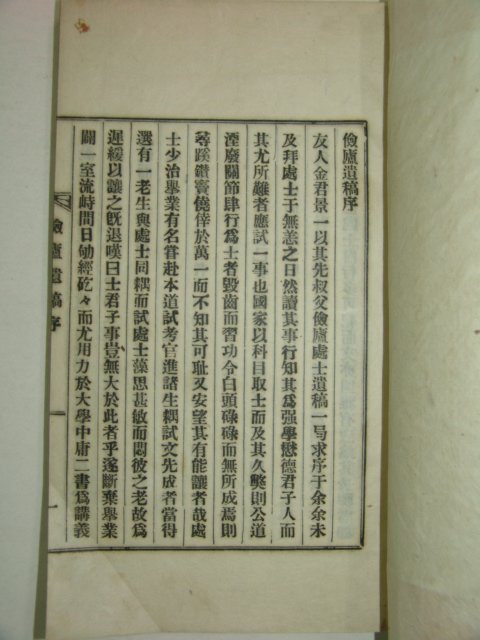 儉廬遺稿序
友人金君景一以其先叔父儉廬處士遺稿一弓求序于余余未
及拜處士于無恙之日然讀其事行知其爲强學懋德君子人而
其尤所難者應試一事也國家以科目取士而及其久獘則公道
湮廢關節肆行爲士者毁齒而習功令白頭碌碌而無所成焉則
尋蹊鑽竇僥倖於萬一而不知其可耻又安望其有能讓者哉處
士少治擧業有名甞赴本道試考官進諸生耦試文先成者當得
選有一老生與處士同耦而試處士藻思甚敏而悶彼之老故爲
遲緩以讓之旣退嘆曰士君子事豈無大於此者乎遂斷棄擧業
闢一室流峙間日劬經矻々而尤用力於大學中庸二書爲講義
儉廬遺稿序
一